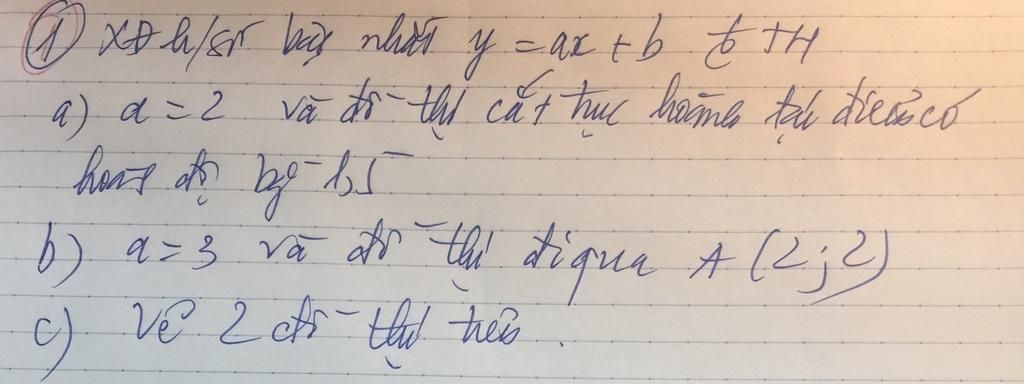 ① XĐ h/số bậc nhất y = ax + b TH
a) a = 2 và đồ thị cắt trục hoành tại điểm có
hoành độ bằng 1,5
b) a = 3 và đồ thị đi qua A (2; 2)
c) Vẽ 2 đồ thị trên.